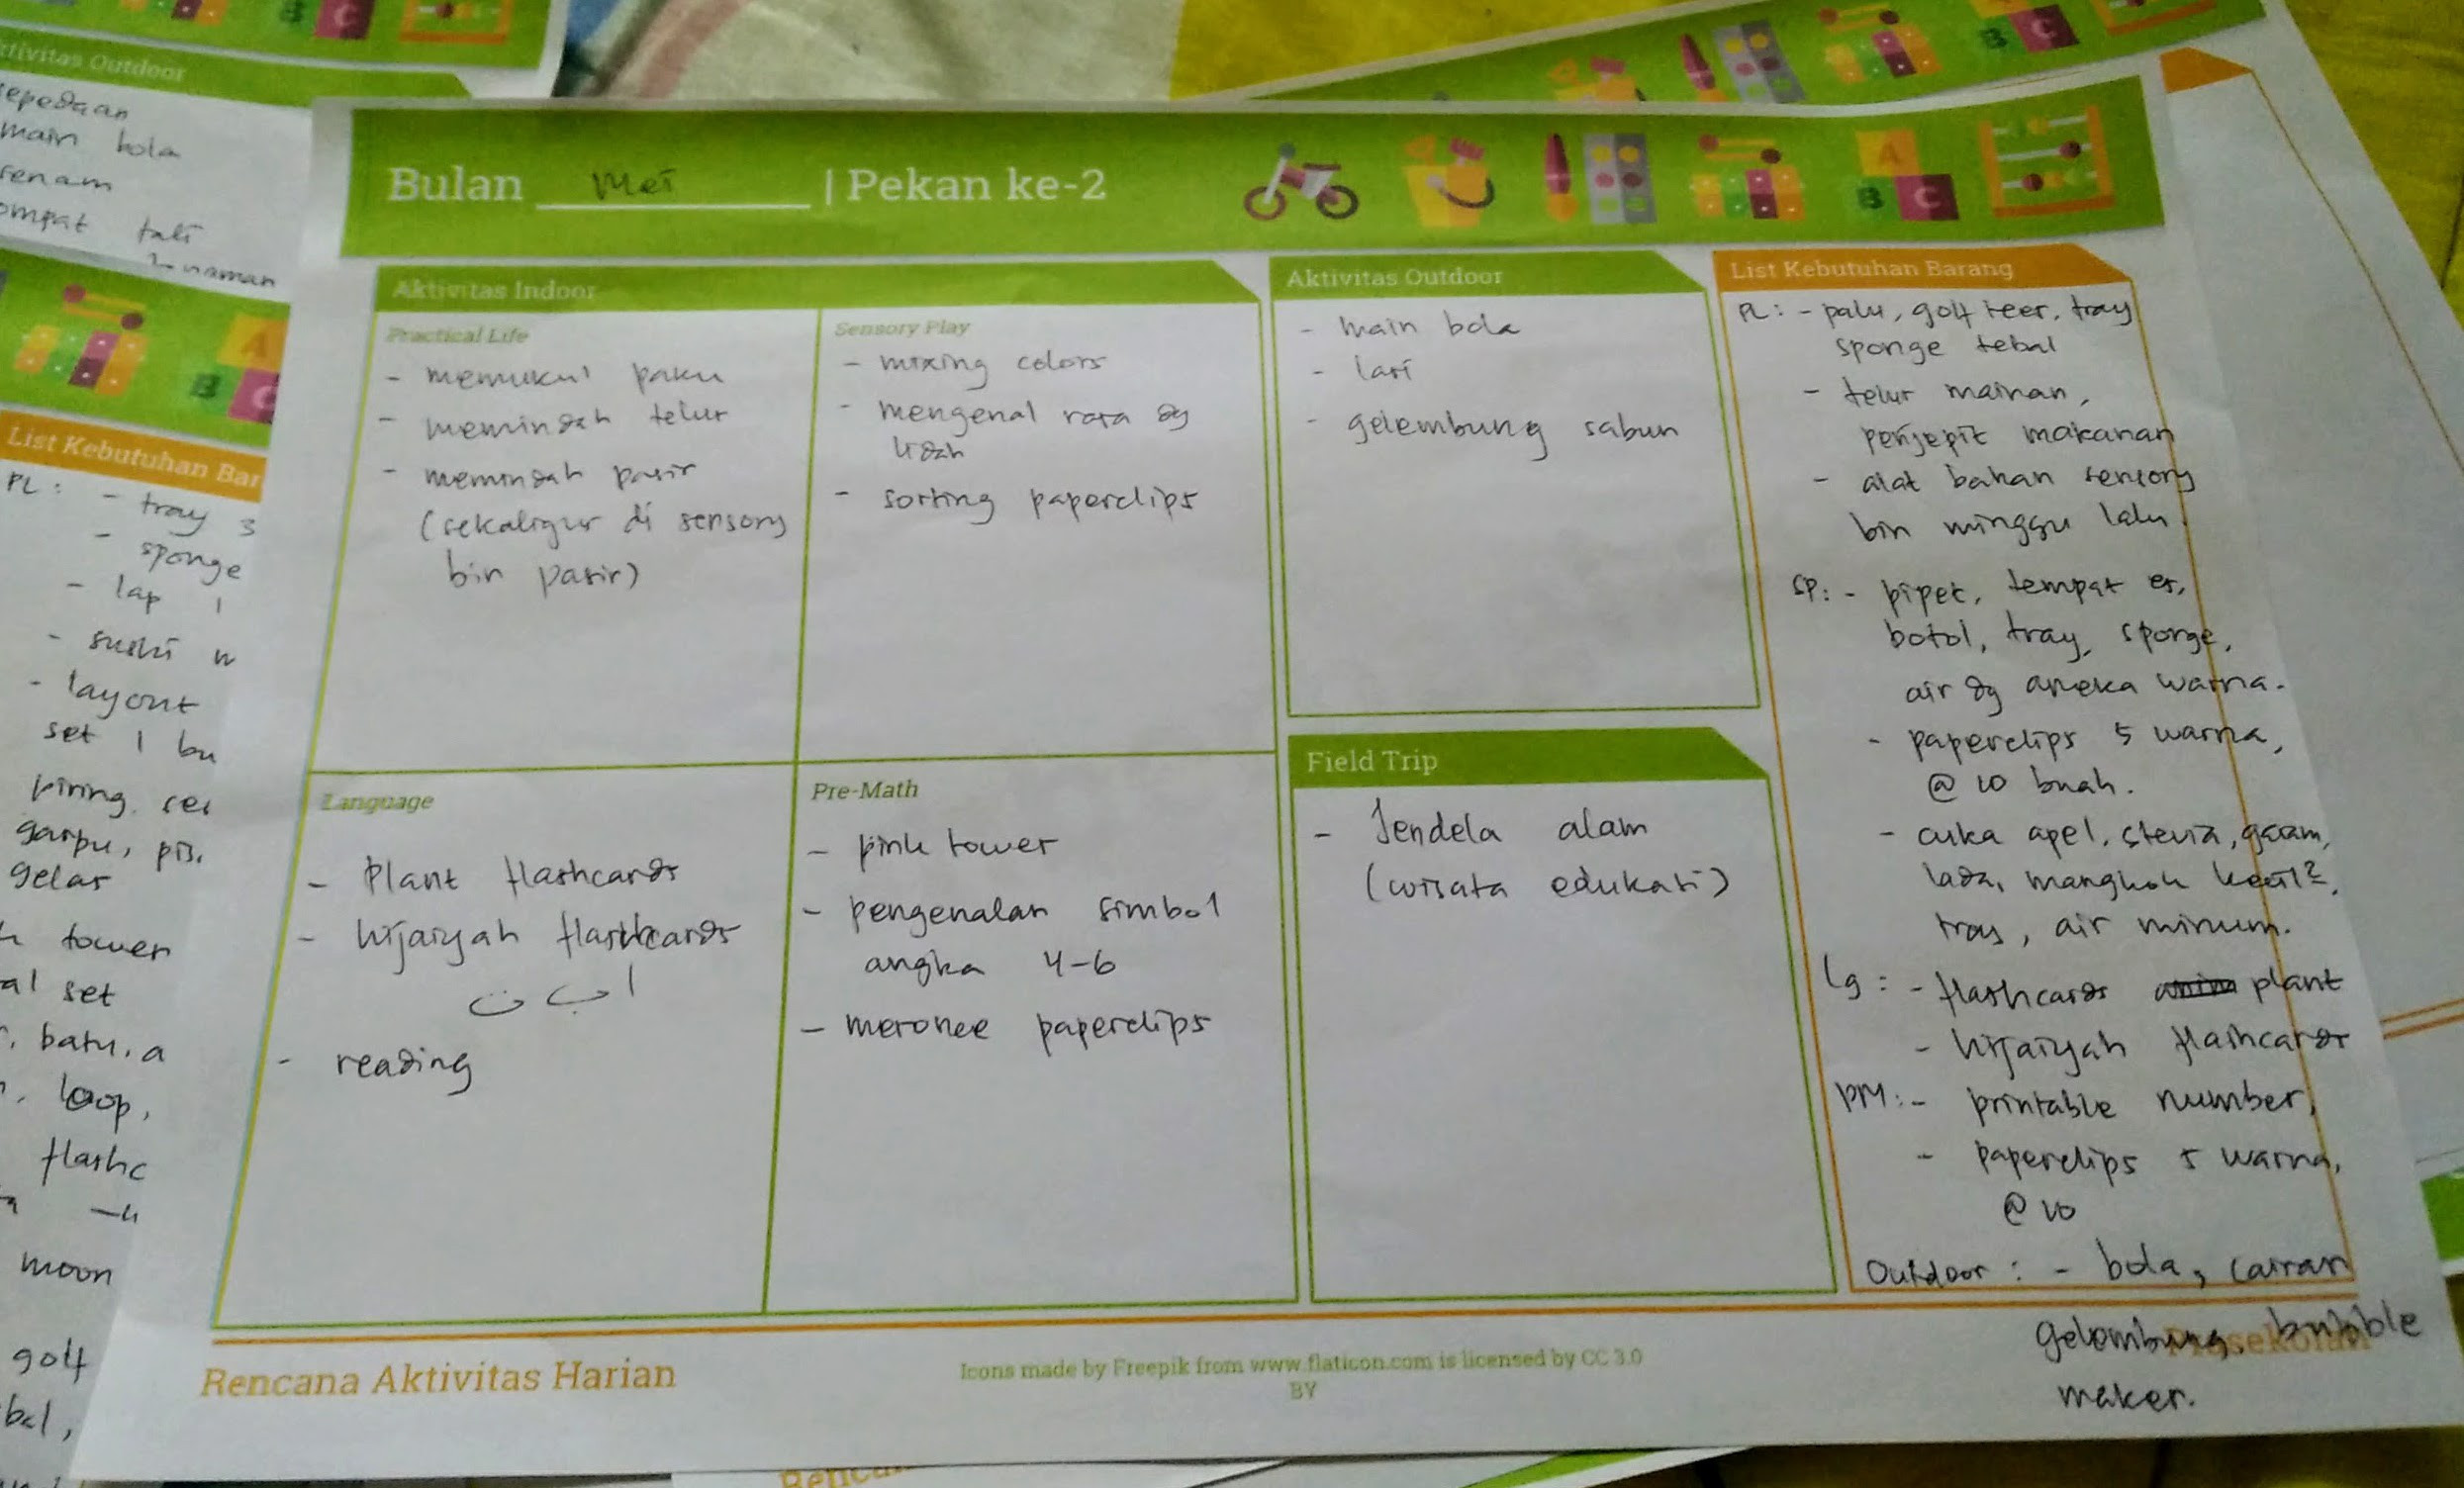 Bulan Mei | Pekan ke-2
Aktivitas Indoor
Practical Life
- memukul paku
- memindah telur
- memindah pasir
(sekaligus di sensory
bin pasir)
Sensory Play
- mixing colors
- mengenal rasa dg
lidah
- sorting paperclips
Language
- Plant flashcards
- hijaiyah flashcards
ا ب ت
- reading
Pre-Math
- pink tower
- pengenalan simbol
angka 4-6
- meronce paperclips
Aktivitas Outdoor
- main bola
- lari
- gelembung sabun
Field Trip
- Jendela alam
(wisata edukasi)
List Kebutuhan Barang
PL: - palu, golf teer, tray
sponge tebal
- telur mainan,
penjepit makanan
- alat bahan sensory
bin minggu lalu.
SP: - pipet, tempat es,
botol, tray, sponge,
air dg aneka warna.
- paperclips 5 warna,
@ 10 buah.
- cuka apel, stevia, garam,
lada, mangkok kecil2,
tray, air minum.
Lg: - flashcards plant
- hijaiyah flashcards
PM: - printable number,
- paperclips 5 warna,
@ 10
Outdoor: - bola, cairan
gelembung, bubble
maker.
Rencana Aktivitas Harian
Icons made by Freepik from www.flaticon.com is licensed by CC 3.0
BY
Aktivitas Outdoor
sepedaan
main bola
senam
lompat tali
List Kebutuhan Bar
PL: - tray 3
- sponge
- lap 1
- sushi
- layout
set 1 bu
piring,
garpu,
gelas
tower
set
batu, a
loop,
flashc
moon
golf